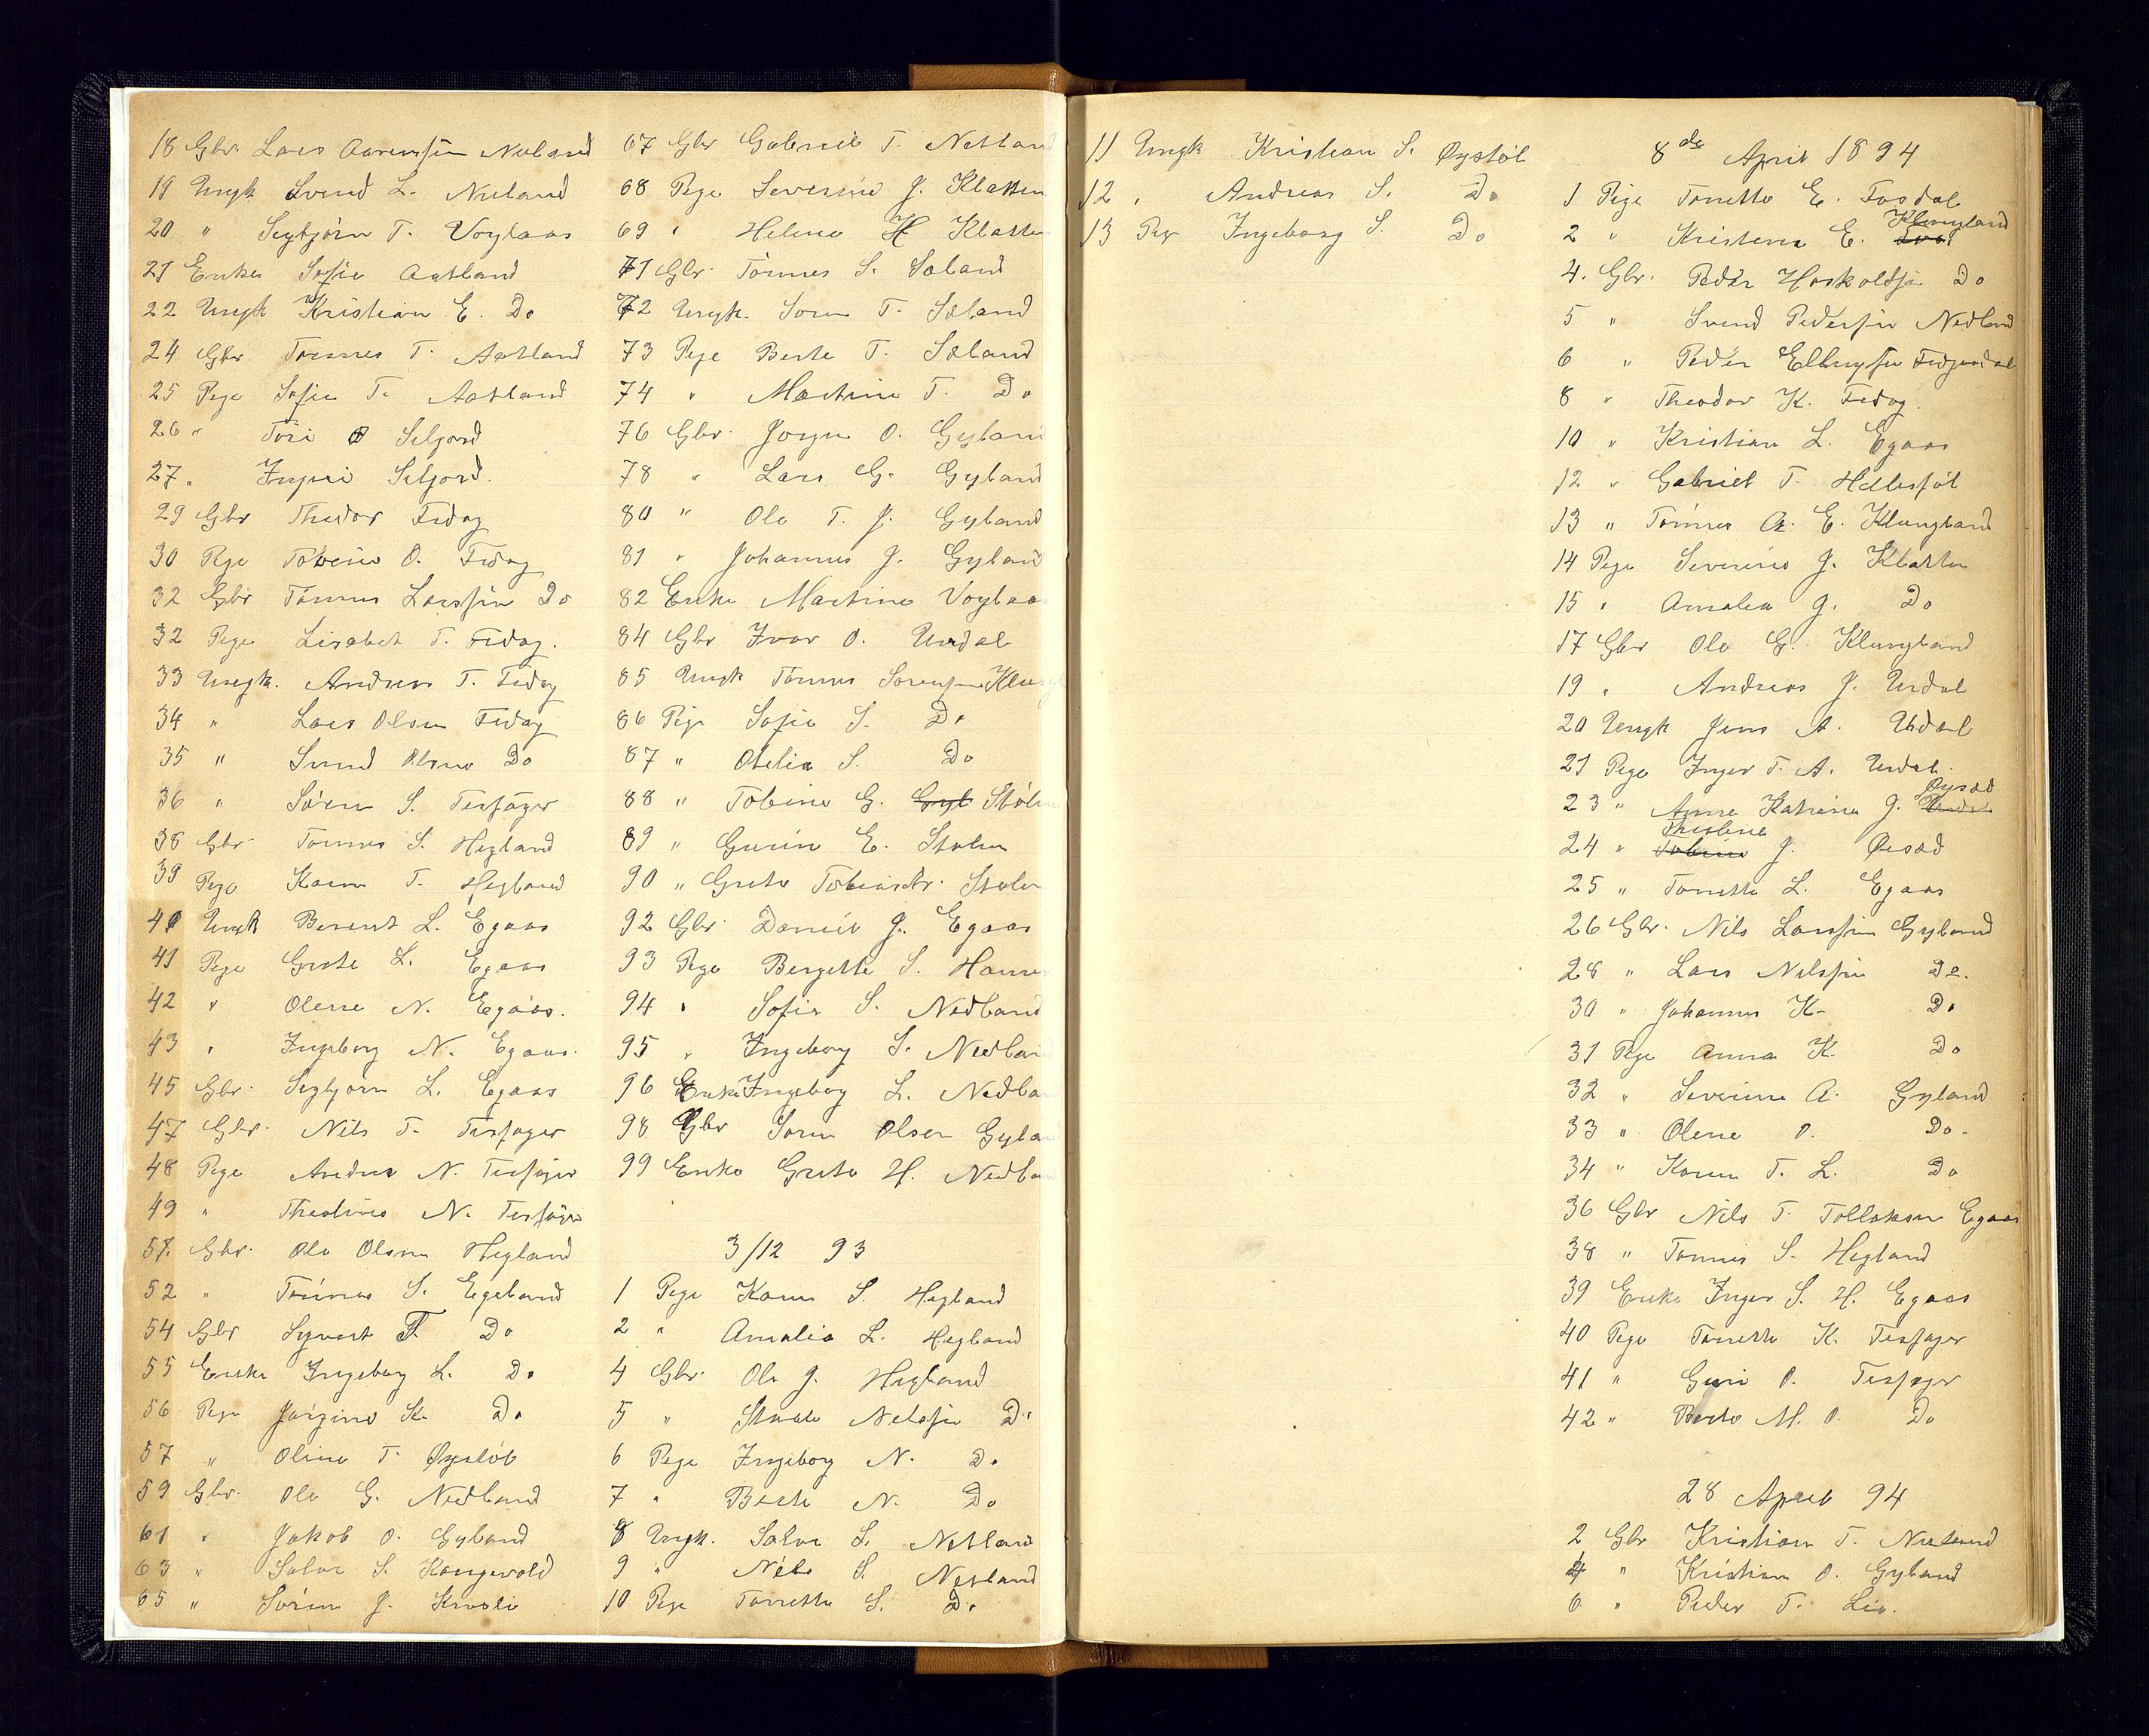 18 Gbr. Lars Aarenssen Nuland
19 Ungk Svend L. Nuland
20 " Segbjörn T. Voglaas
21 Enke Sofie Aatland
22 Ungk Kristian E. Do
24 Gbr Tønnes T. Aatland
25 Pige Sofie T. Aatland
26 " Tori O Seljord
27 " Seljord.
29 Gbr Theodor Fedog
30 Pige Tobine O. Fedog
32 Gbr Tönnes Larssen Do
32 Pige Lisabet T. Fedog.
33 Ungk. Andreas T. Fedog
34 " Lars Olsen Fedog
35 " Svend Olsen Do
36 " Sören S. Tesfager
38 Gbr Tönnes S. Hegland
39 Pige Karen T. Hegland
40 Ungk Berent L. Egaas
41 Pige Grete L. Egaas
42 " Olene N. Egaas.
43 " Ingeborg N. Egaas.
45 Gbr. Segbjørn L. Egaas
47 Gbr. Nils T. Tesfager
48 Pige Andrea N. Tesfager
49 " Theoline N. Tesfager
51 Gbr. Ole Olsen Hegland
52 " Tönnes S. Egeland
54 Gbr Syvert T. Do
55 Enke Ingeborg L. Do
56 Pige Jörgine K. Do
57 " Oline T. Øystöl
59 Gbr. Ole G. Nedland
61 " Jakob O. Gyland
63 " Salve S. Kongevold
65 " Sören J.
67 Gbr Gabriel T. Netland
68 Pige Severine J. Klatten
69 " Helene H Klatten
71 Gbr. Tönnes S. Soland
72 Ungk. Soren T. Soland
73 Pige Berte T. Soland
74 " Martine T. Do
76 Gbr. Jorgen O. Gyland
78 " Lars G. Gyland
80 " Ole T. J. Gyland
81 " Johannes J. Gyland
82 Enke Martine Voglaas
84 Gbr Ivar O. Urdal
85 Ungk Tönnes Sorensen Klu
86 Pige Sofie S. Do
87 " Otelia S. Do
88 " Tobine G. Gyl Stölen
89 " Gurine E. Stolen
90 " Grete Tobiasdtr. Stolen
92 Gbr Daniel J. Egaas
93 Pige Bergette S.
94 " Sofie S. Nedland
95 " Ingeborg S. Nedland
96 Enke Ingeborg L. Nedla
98 Gbr Soren Olsen Gyla
99 Enke Grete H. Nedla
3/12 93
1 Pige Karen S. Hegland
2 " Amalie L. Hegland
4 Gbr. Ole J. Hegland
5 " Nelssen Do
6 Pige Ingeborg N. Do
7 " Berte N. Do
8 Ungk. Salve S. Netland
9 " Nils S. Netland
10 Pige Tonette S. Do
11 Ungk Kristian S. Øystöl
12 " Andreas S. Do
13 Pige Ingeborg S. Do
8de April 1894
1 Pige Tonette E. Fosdal
2 " Kristena E. Klungland
4. Gbr. Peder Hoskoldsen Do
5 " Svend Pedersen Nedland
6 " Peder Ellingsen Fedjedal
8 " Theodor K. Fedog.
10 " Kristian L. Egaas
12 " Gabriel T. Hellesföl
13 " Tönnes A. E. Klungland
14 Pige Severine J. Klatten
15 " Amalia J. Do
17 Gbr Ole G. Klungland
19 " Andreas J. Urdal
20 Ungk Jens A. Urdal
21 Pige Inger T. A. Urdal.
23 " Anne Katrine J. Øysæd
24 " Theoline J. Øesæd
25 " Tonette L. Egaas
26 Gbr. Nils Larssen Gyland
28 " Lars Nilssen Do.
30 " Johannes K. Do
31 Pige Anna K. Do
32 " Severine A. Gyland
33 " Olene O. Do.
34 " Karen T. L. Do
36 Gbr Nils T. Tollaksen Egaas
38 " Tonnes S. Hegland
39 Enke Inger S. H. Egaas
40 Pige Tonette K. Tesfager
41 " Guri O. Tesfager
42 " Berte M. O. Do
28 April 94
2 Gbr Kristian T. Nuland
4 " Kristian O. Gyland
6 " Peder T. Lie.